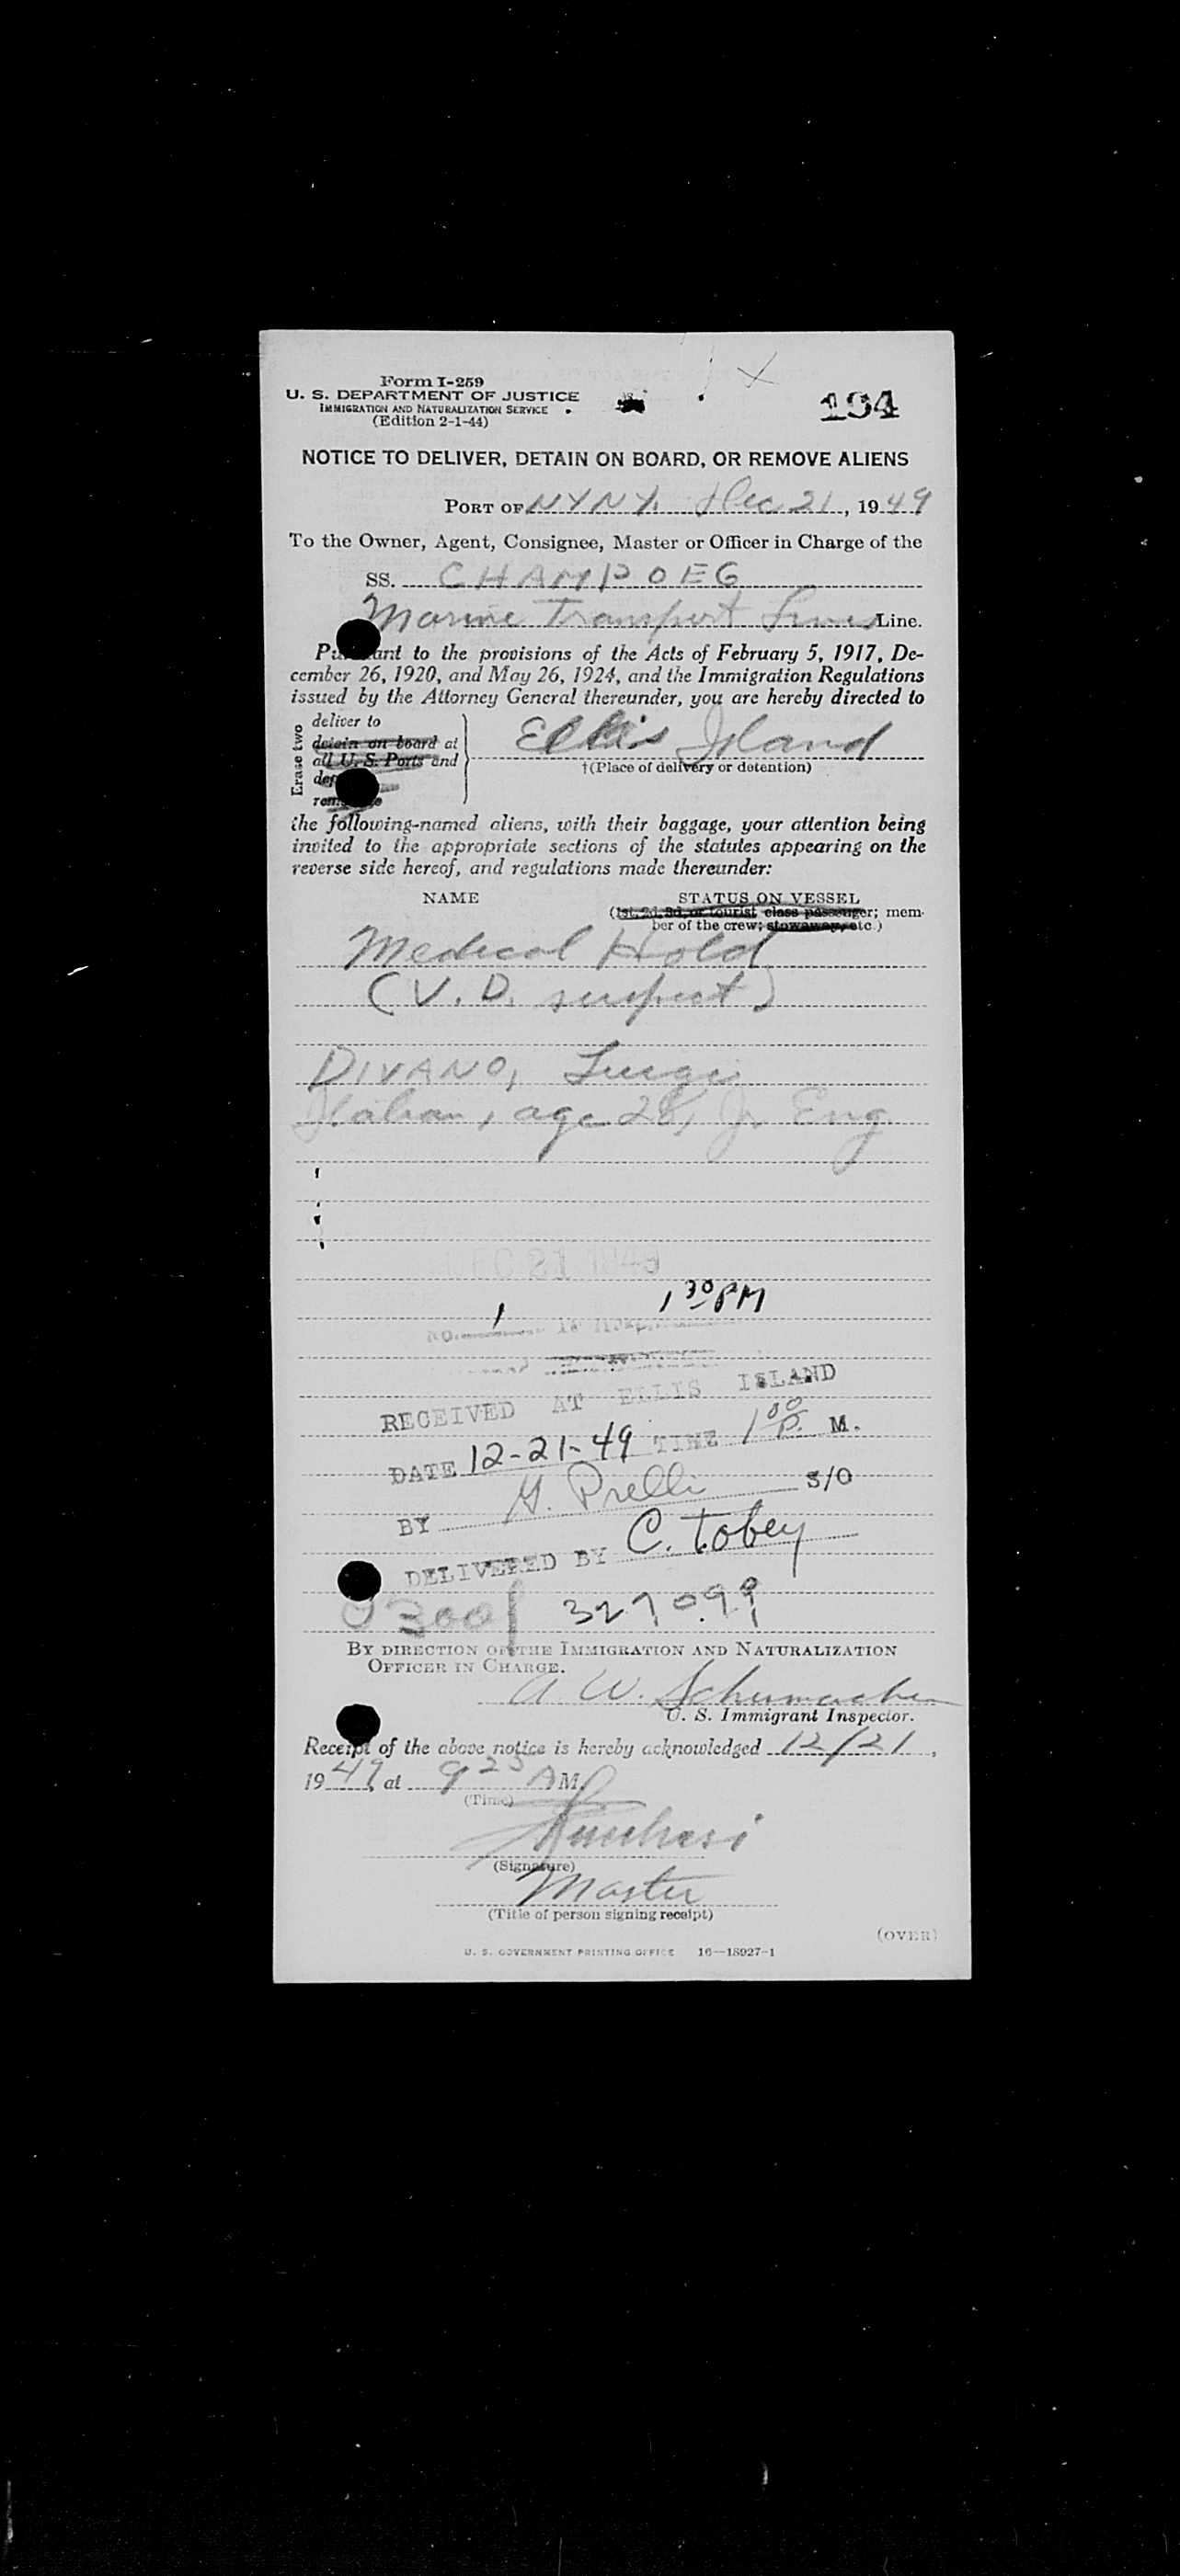 Form I-259
U. S. DEPARTMENT OF JUSTICE
IMMIGRATION AND NATURALIZATION SERVICE
(Edition 2-1-44)
194
NOTICE TO DELIVER, DETAIN ON BOARD, OR REMOVE ALIENS
PORT OF NYNY. Dec 21, 1949
To the Owner, Agent, Consignee, Master or Officer in Charge of the
SS. CHAMPOEG
Marine Transport Lines Line.
Pursuant to the provisions of the Acts of February 5, 1917, De-
cember 26, 1920, and May 26, 1924, and the Immigration Regulations
issued by the Attorney General thereunder, you are hereby directed to
Erase two
deliver to
detain on board at
all U. S. Ports and
Ellis Island
†(Place of delivery or detention)
the following-named aliens, with their baggage, your attention being
invited to the appropriate sections of the statutes appearing on the
reverse side hereof, and regulations made thereunder:
NAME
STATUS ON VESSEL
(1st, 2d, 3d, or tourist class passenger; mem-
ber of the crew; stowaway, etc.)
Medical Hold
(V. D. suspect)
DIVANO, Luigi
Italian, age 28, Jr Eng.
DEC 21 1949
1 30 PM
NO. 1
RECEIVED AT ELLIS ISLAND
DATE 12-21-49 TIME 1 00 P. M.
BY G. Prelli S/O
DELIVERED BY C. Tobey
0300/ 327099
BY DIRECTION OF THE IMMIGRATION AND NATURALIZATION
OFFICER IN CHARGE.
A W. Schumacher
U. S. Immigrant Inspector.
Receipt of the above notice is hereby acknowledged 12/21,
1949, at 9 25 AM.
(Time)
(Signature)
Master
(Title of person signing receipt)
(OVER)
U. S. GOVERNMENT PRINTING OFFICE 16—18927-1